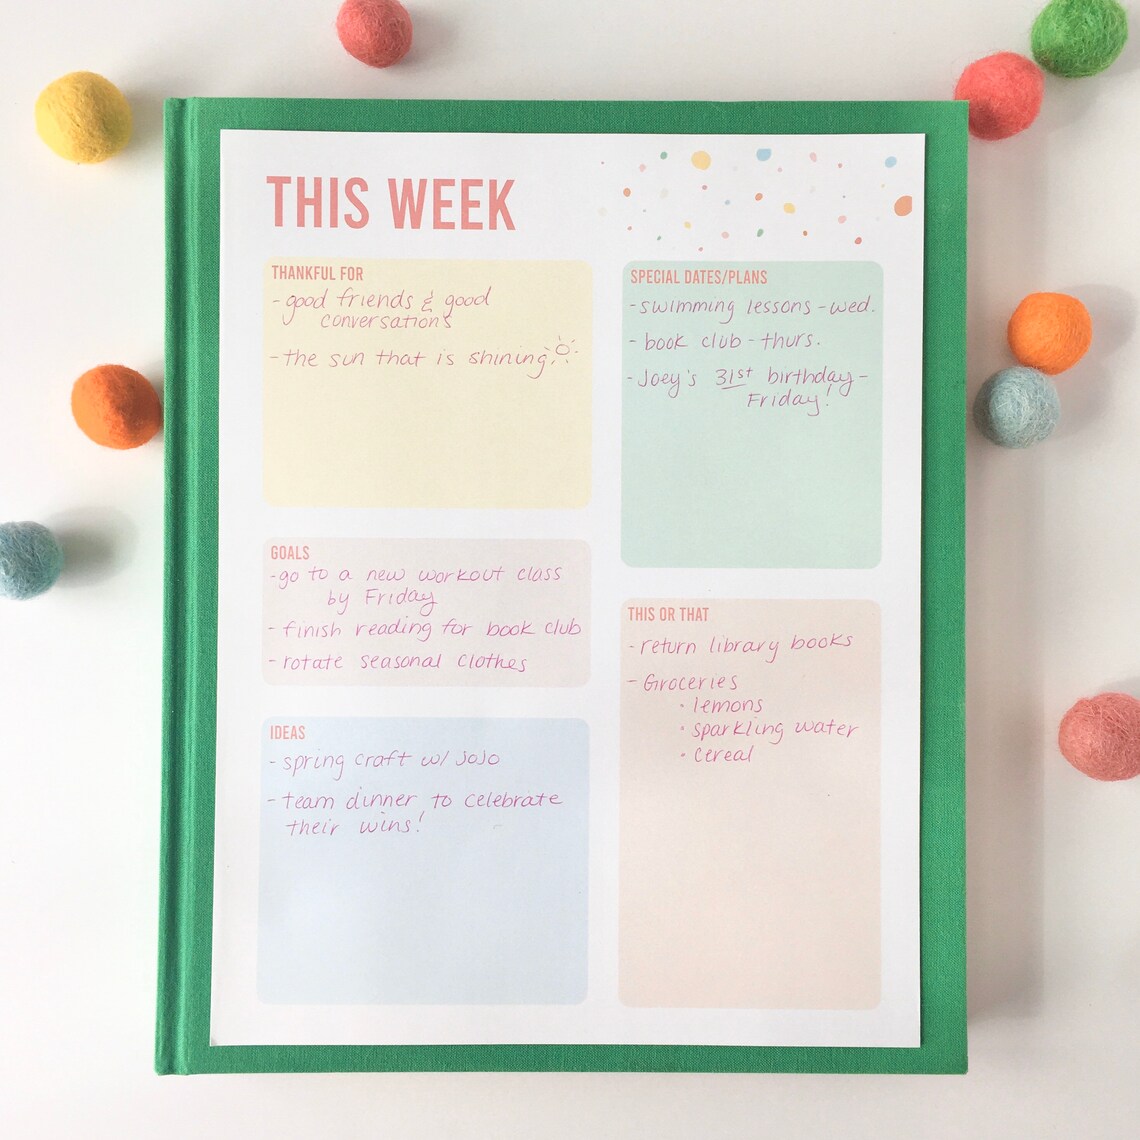 THIS WEEK
THANKFUL FOR
- good friends & good
conversations
- the sun that is shining
GOALS
- go to a new workout class
by Friday
- finish reading for book club
- rotate seasonal clothes
IDEAS
- spring craft w/ JoJo
- team dinner to celebrate
their wins!
SPECIAL DATES/PLANS
- swimming lessons - wed.
- book club - thurs.
- Joey's 31st birthday -
Friday!
THIS OR THAT
- return library books
- Groceries
· lemons
· sparkling water
· cereal